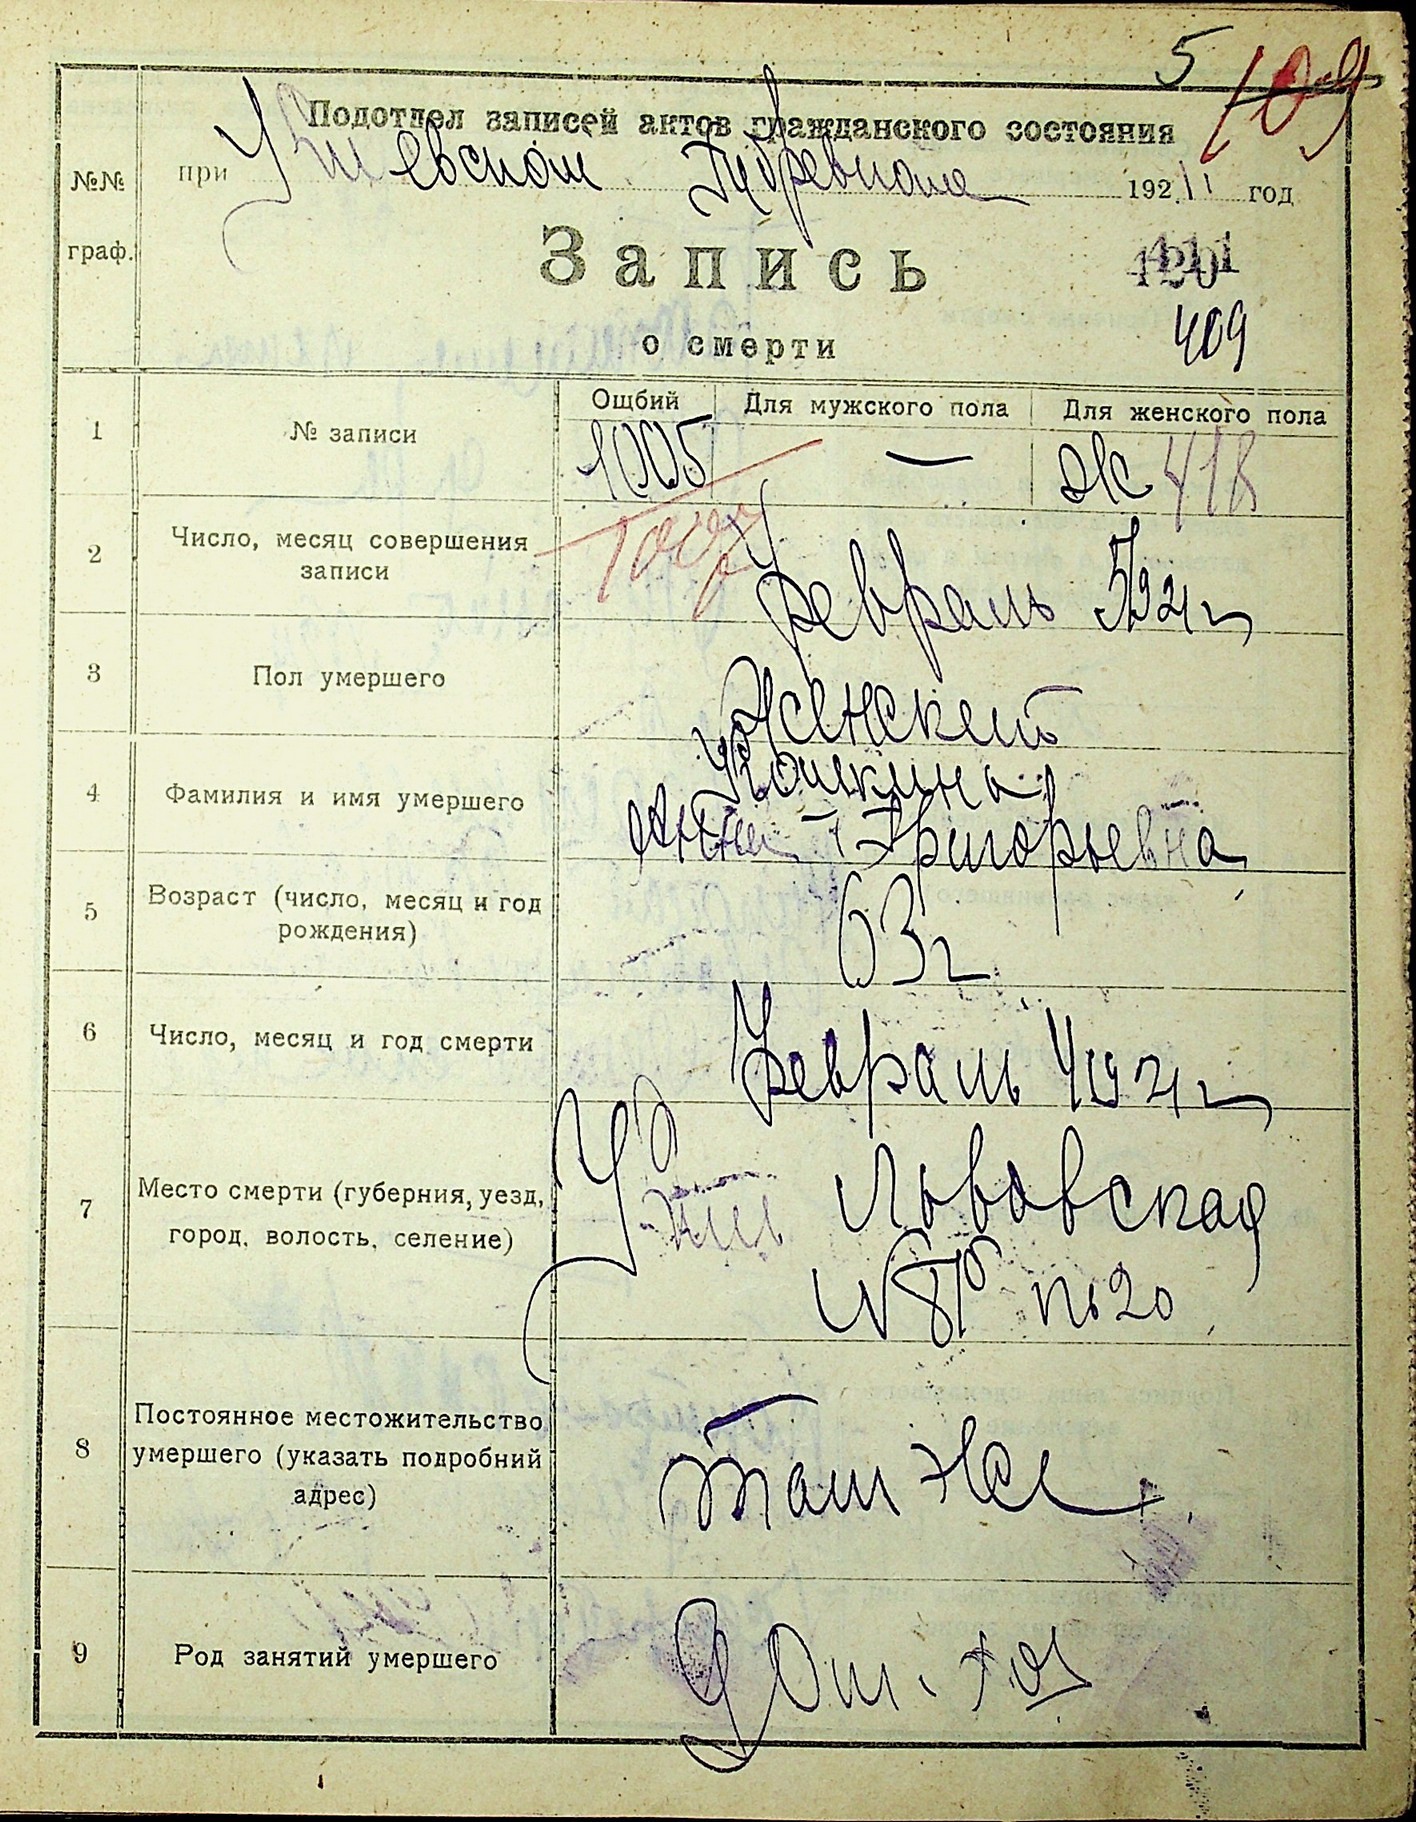 5 109
Подотдел записей актов гражданского состояния
№№ граф.
при Губревкоме 192 1 год
Запись
409
о смерти
Ощбий Для мужского пола Для женского пола
1 № записи 1005 — ж 418
1007
2 Число, месяц совершения записи Февраль 5/921 г
3 Пол умершего Женский
4 Фамилия и имя умершего
Анна Григорьевна
5 Возраст (число, месяц и год рождения) 63 г
6 Число, месяц и год смерти Февраль 4/921 г
7 Место смерти (губерния, уезд, город, волость, селение) Львовская
№ 20
8 Постоянное местожительство умершего (указать подробний адрес) там же
9 Род занятий умершего Дом. хоз